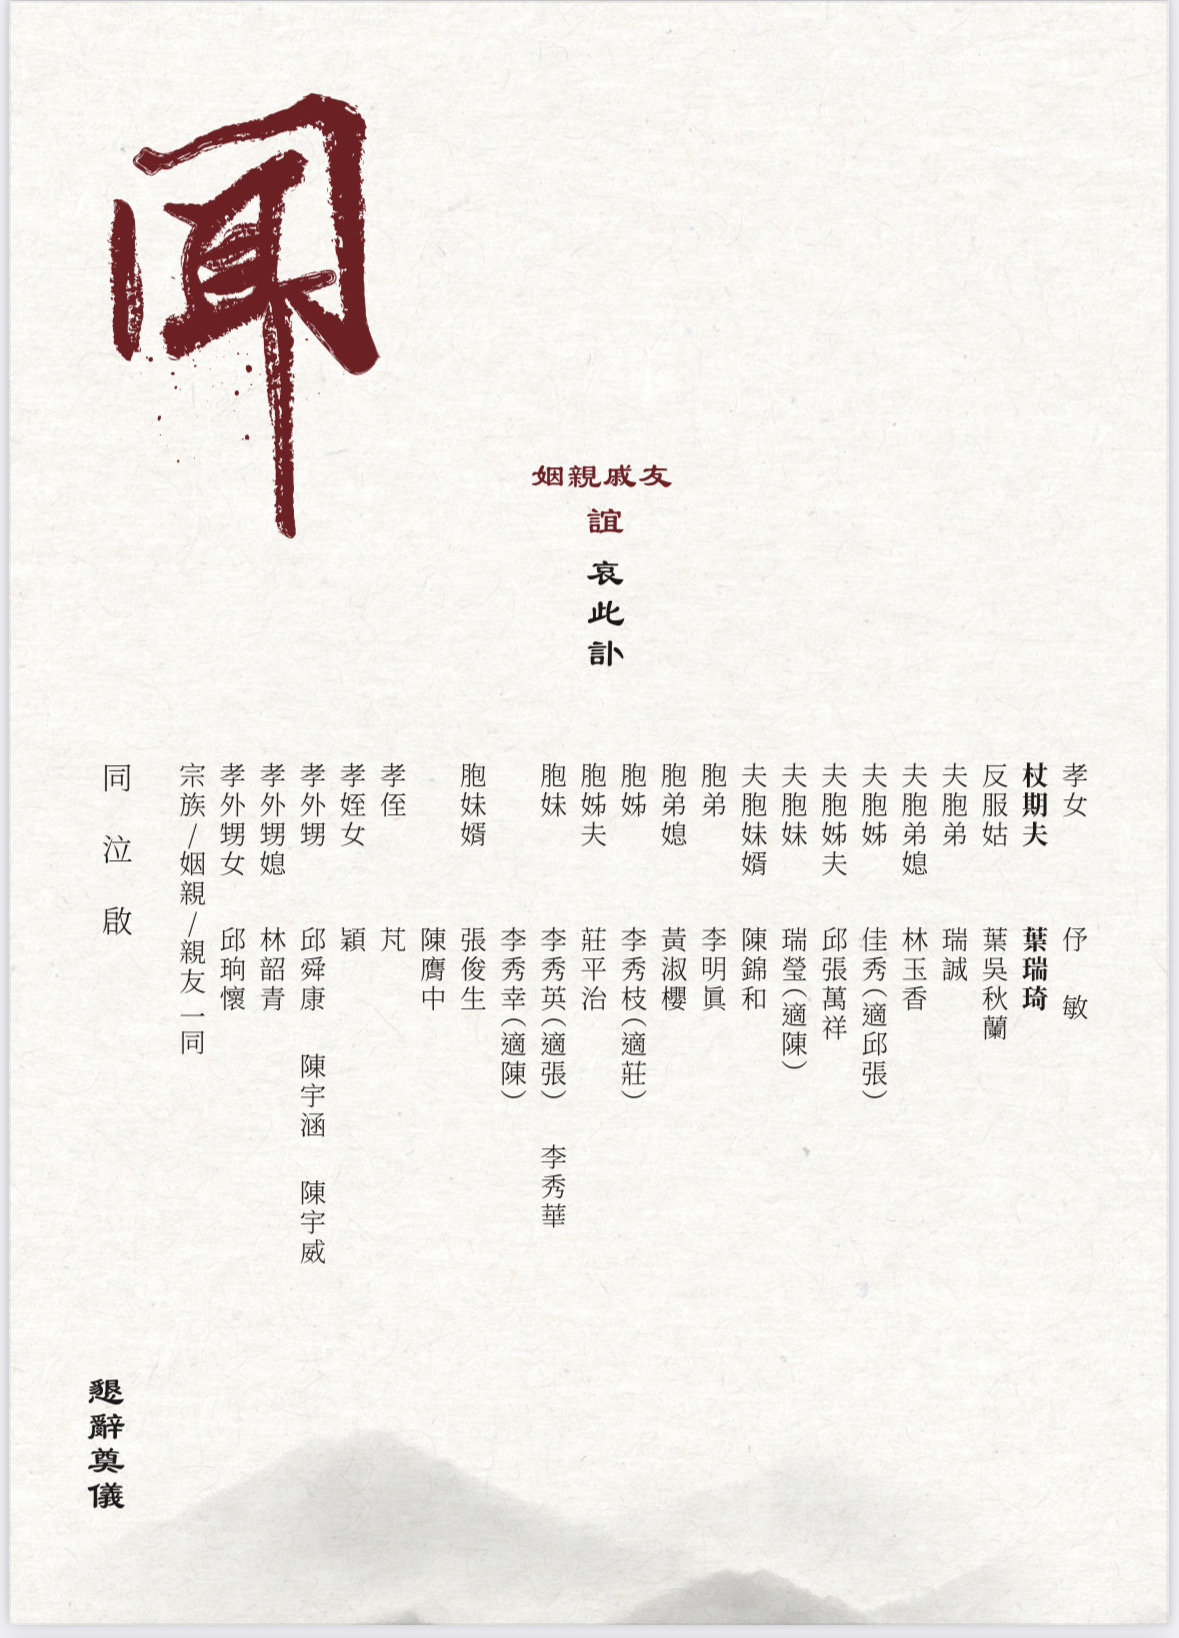 聞
姻親戚友
誼
哀此訃
孝女 伃敏
杖期夫 葉瑞琦
反服姑 葉吳秋蘭
夫胞弟 瑞誠
夫胞弟媳 林玉香
夫胞姊 佳秀(適邱張)
夫胞姊夫 邱張萬祥
夫胞妹 瑞瑩(適陳)
夫胞妹婿 陳錦和
胞弟 李明眞
胞弟媳 黃淑櫻
胞姊 李秀枝(適莊)
胞姊夫 莊平治
胞妹 李秀英(適張) 李秀華
李秀幸(適陳)
胞妹婿 張俊生
陳膺中
孝侄 芃
孝姪女 穎
孝外甥 邱舜康 陳宇涵 陳宇威
孝外甥媳 林韶青
孝外甥女 邱珦懷
宗族/姻親/親友一同
同泣啟
懇辭奠儀